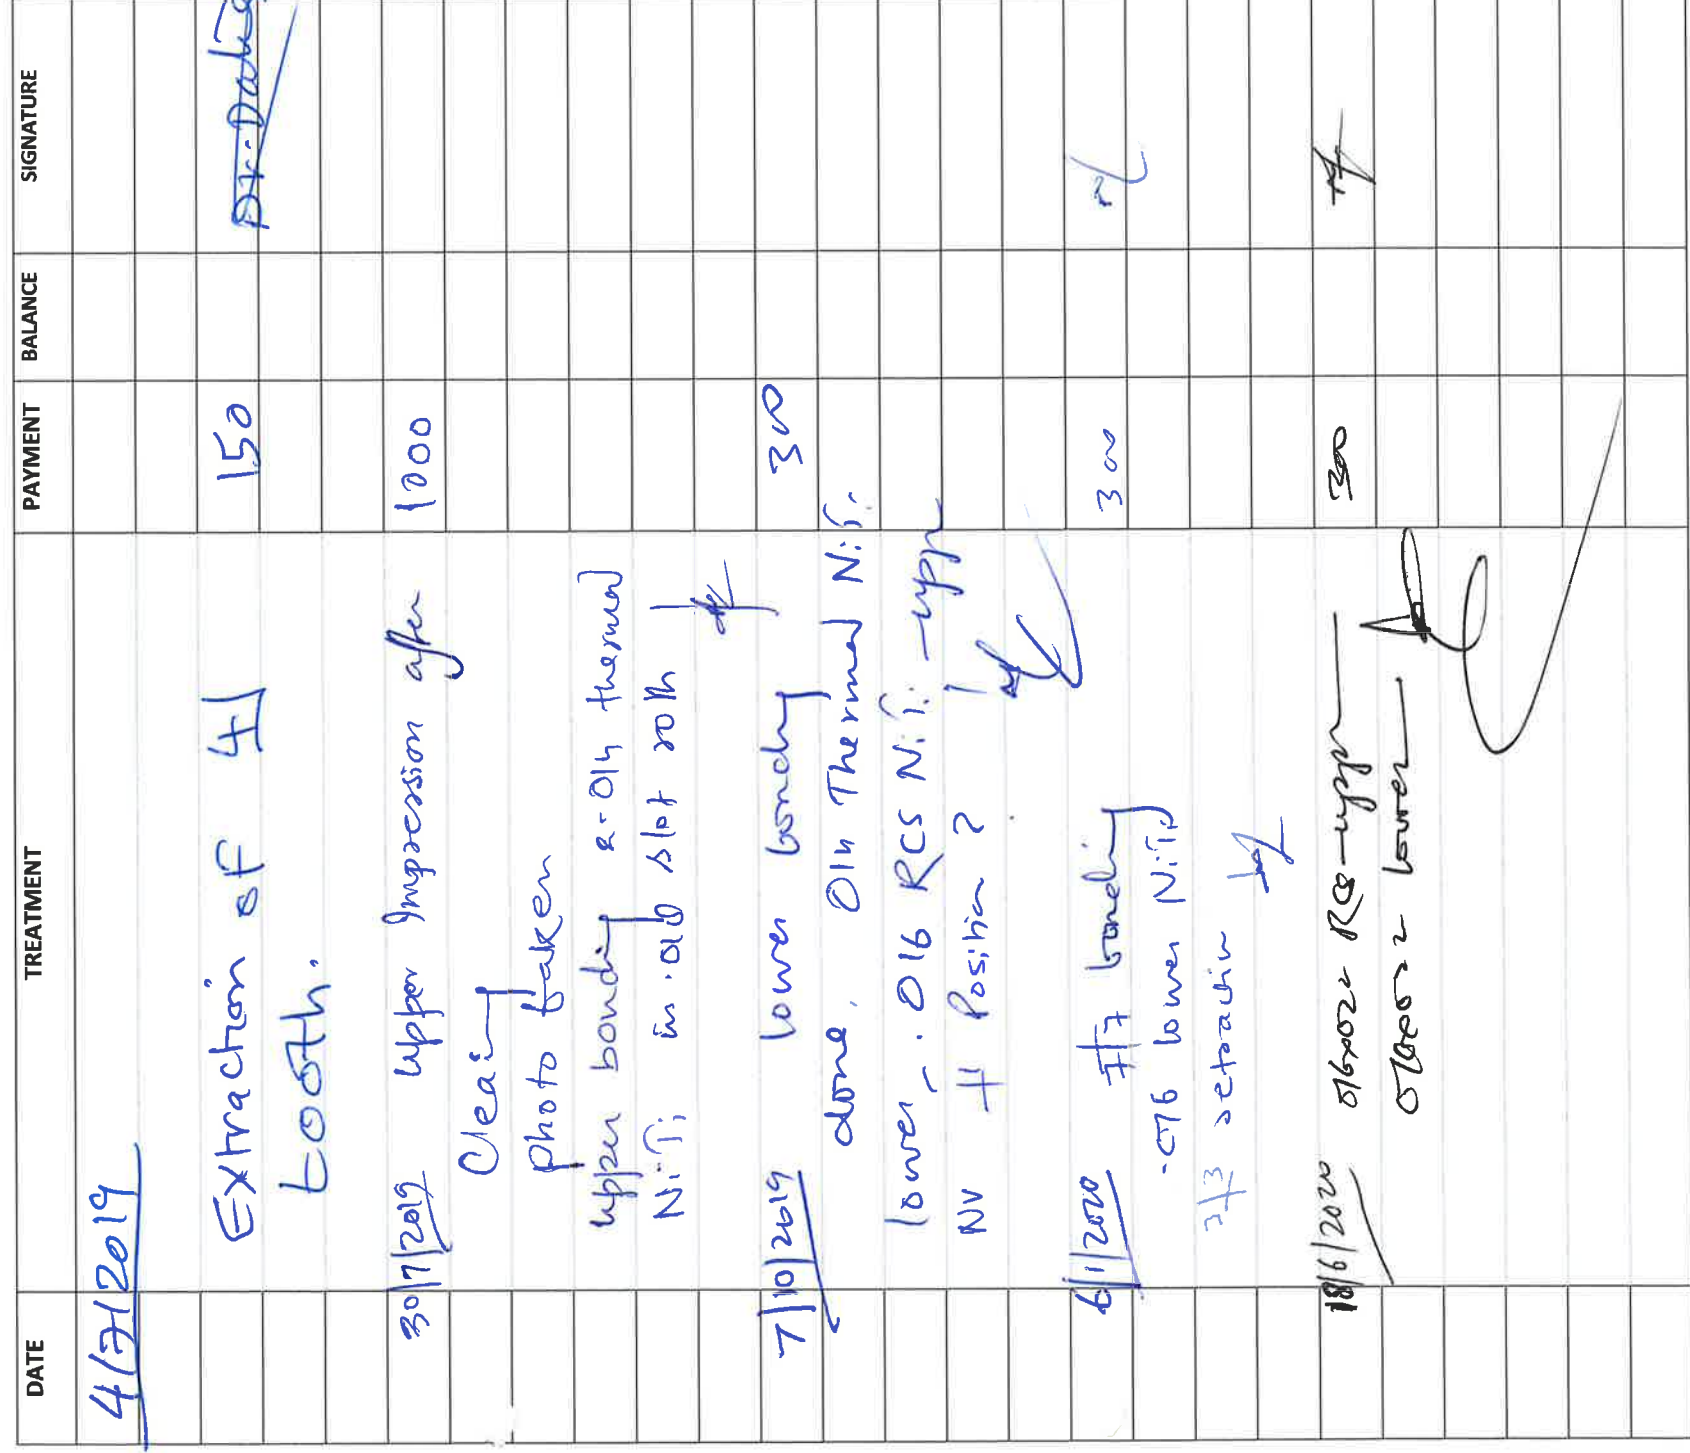 DATE TREATMENT PAYMENT BALANCE SIGNATURE
4/7/2019
Extraction of 4 150
tooth.
30/7/2019 upper Impression after 1000
Cleaing
photo taken
upper bonding 014 thermal
NiTi in .018 slot
7/10/2019 lower bonding 300
done. 014 Thermal NiTi.
lower - .016 RCS NiTi - uppr
NV Position 2
6/1/2020 7/7 bonding 300
.016 lower NiTi
3/3 retraction
18/6/2020 016x022 RCS - uppr 300
016x022 lower